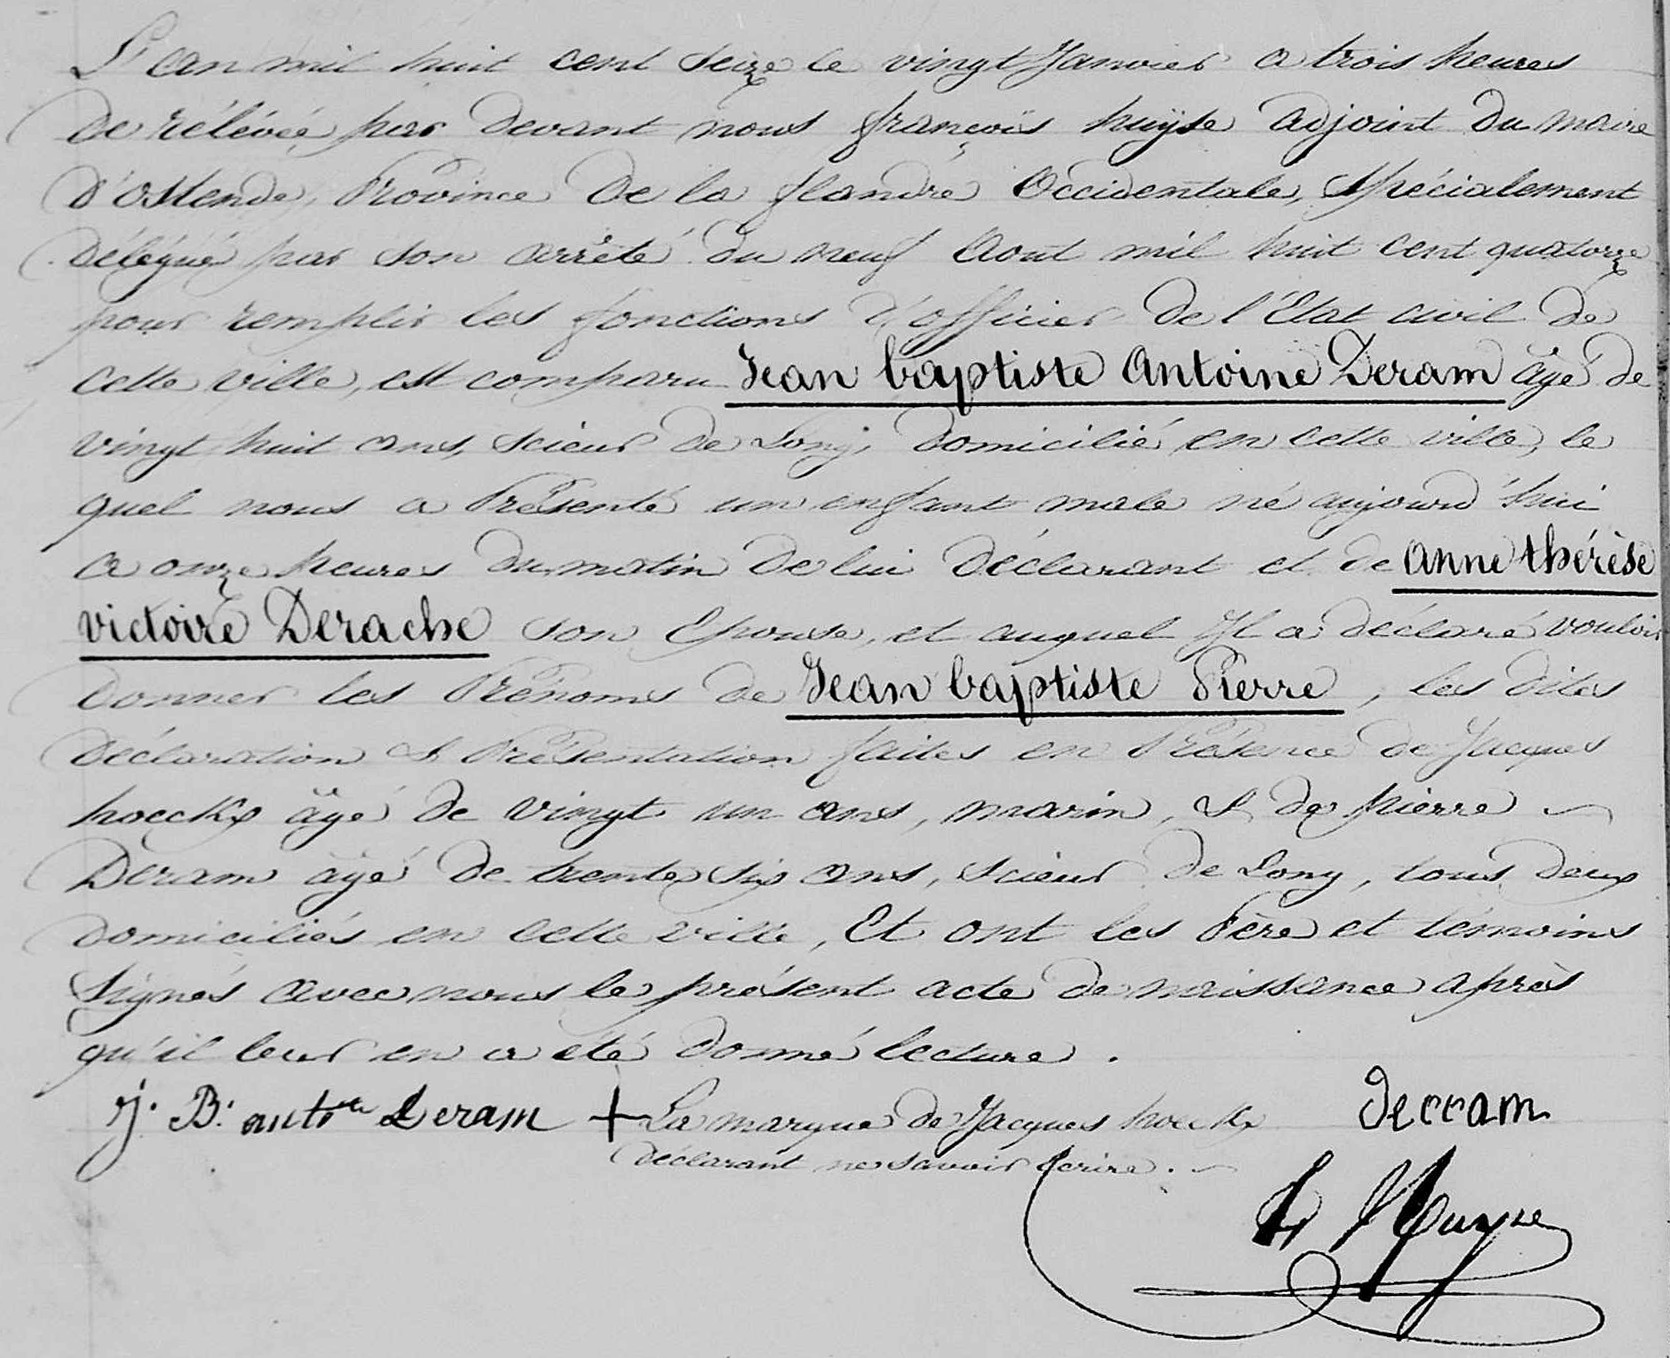 L'an mil huit cent seize le vingt Janvier a trois heures
de rélévée, par devant nous françois huÿse adjoint du maire
d'ostende, Province de la flandre Occidentale, Spécialement
délégué par son arrêté du neuf Aout mil huit cent quatorze
pour remplir les fonctions d'officier de l'Etat civil de
cette ville, est comparu Jean baptiste Antoine Deram âgé de
vingt huit ans, scieur de Long, domicilié en cette ville, le
quel nous a Présenté un enfant male né aujourd'hui
a onze heures du matin de lui déclarant et de anne thérèse
victoire Derache son Epouse, et auquel Il a déclaré vouloir
donner les Prénoms de Jean baptiste Pierre, les dites
déclaration & Présentation faites en Présence de Jacques
hoeckx âgé de vingt un ans, marin, & de pierre
Deram âgé de trente six ans, scieur de Long, tous deux
domiciliés en cette ville, Et ont les Père et témoins
Signés avec nous le présent acte de naissance après
qu'il leur en a été donné lecture.
J. B. antne Deram + La marque de Jacques hoeckx Decram
déclarant ne savoir Ecrire.
F Huyse